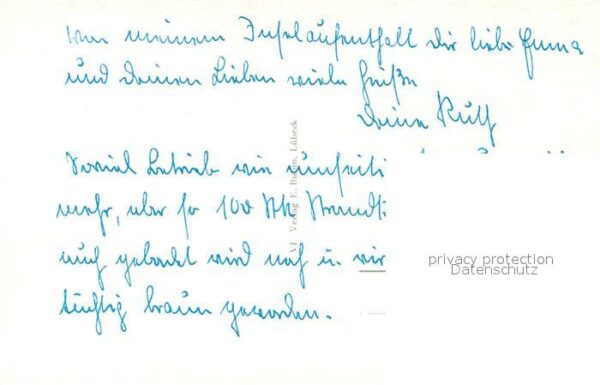 Von meinem Inselaufenthalt Dir liebe Emma
und Deinen Lieben viele Grüße
Deine Ruth
Soviel Betrieb wie umseiti
mehr, aber so 100 Stk Strandk
auch gebadet wird noch u. wir
tüchtig braun geworden.
VI Verlag E. Lübeck
privacy protection
Datenschutz